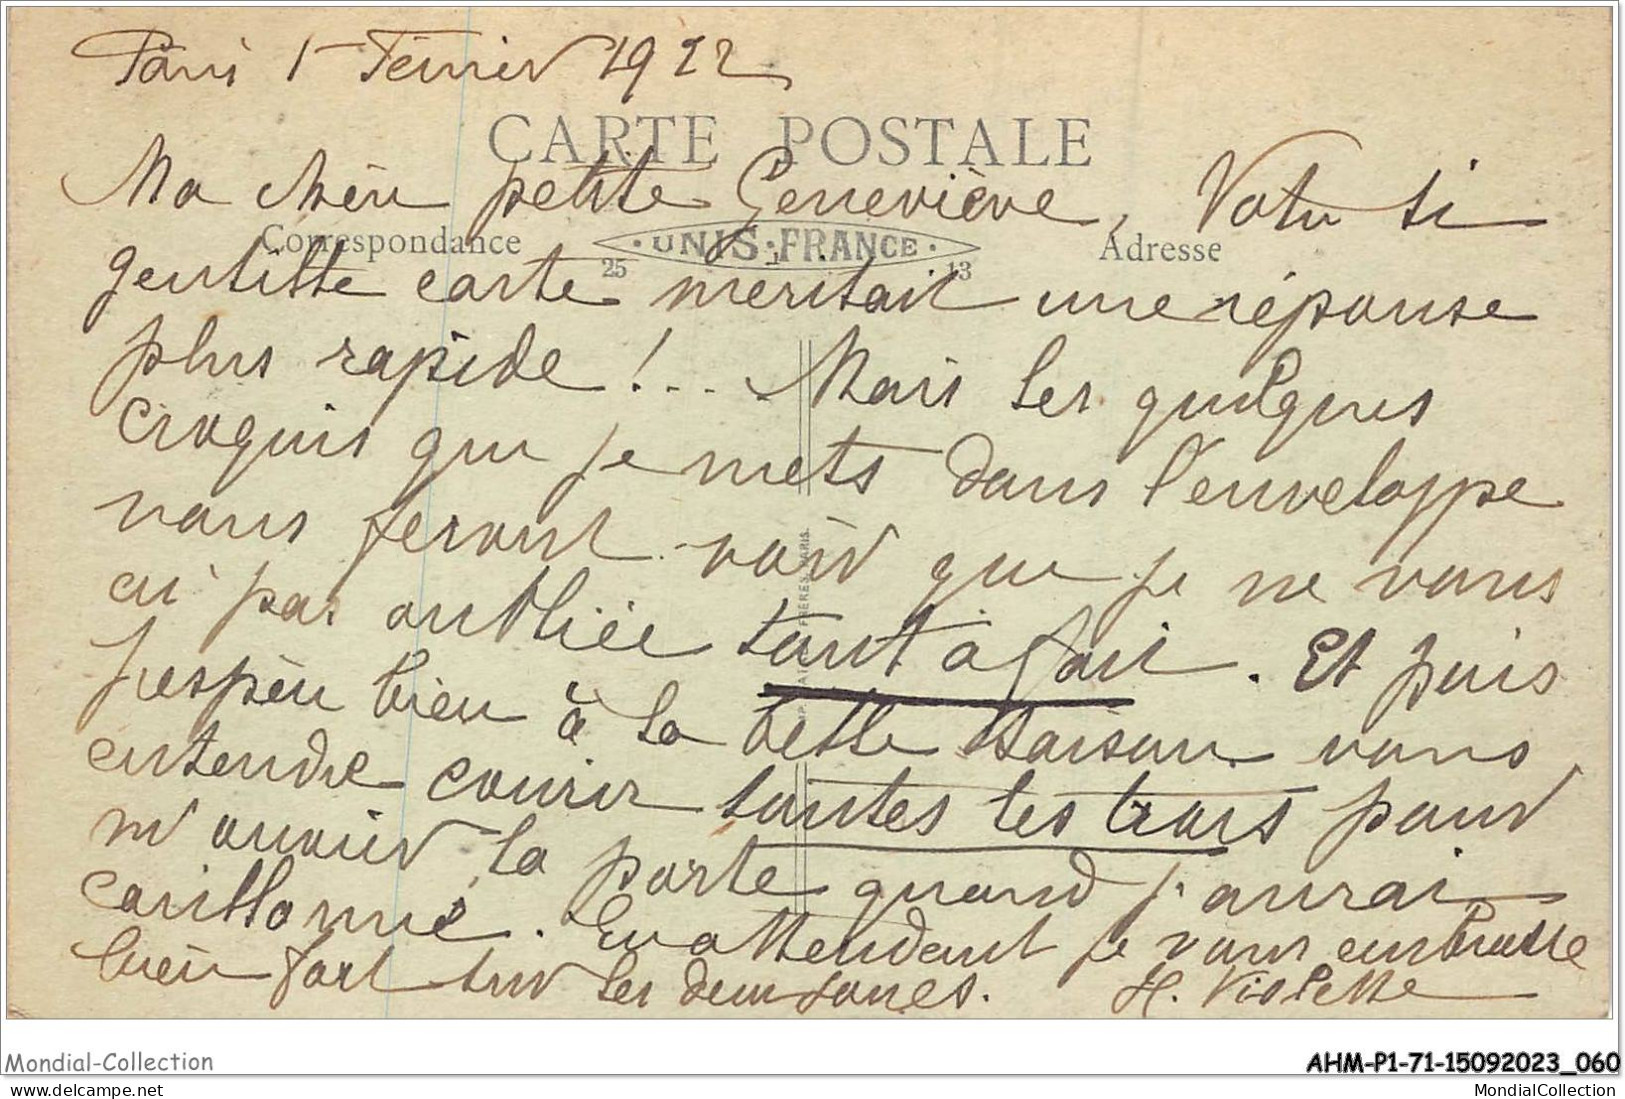 Paris 1er Février 1922
CARTE POSTALE
Ma chère petite Geneviève, Votre si
Correspondance
UNIS-FRANCE
Adresse
25
13
gentille carte meritait une réponse
plus rapide !... Mais les quelques
croquis que je mets dans l'enveloppe
vous feront voir que je ne vous
ai pas oubliée tout à fait. Et puis
j'espère bien à la belle saison vous
entendre courir toutes les trois pour
m'ouvrir la porte quand j'aurai
carillonné. En attendant je vous embrasse
bien fort sur les deux joues. H. Violette
FRÈRES PARIS
Mondial-Collection
AHM-P1-71-15092023_060
delcampe.net
MondialCollection